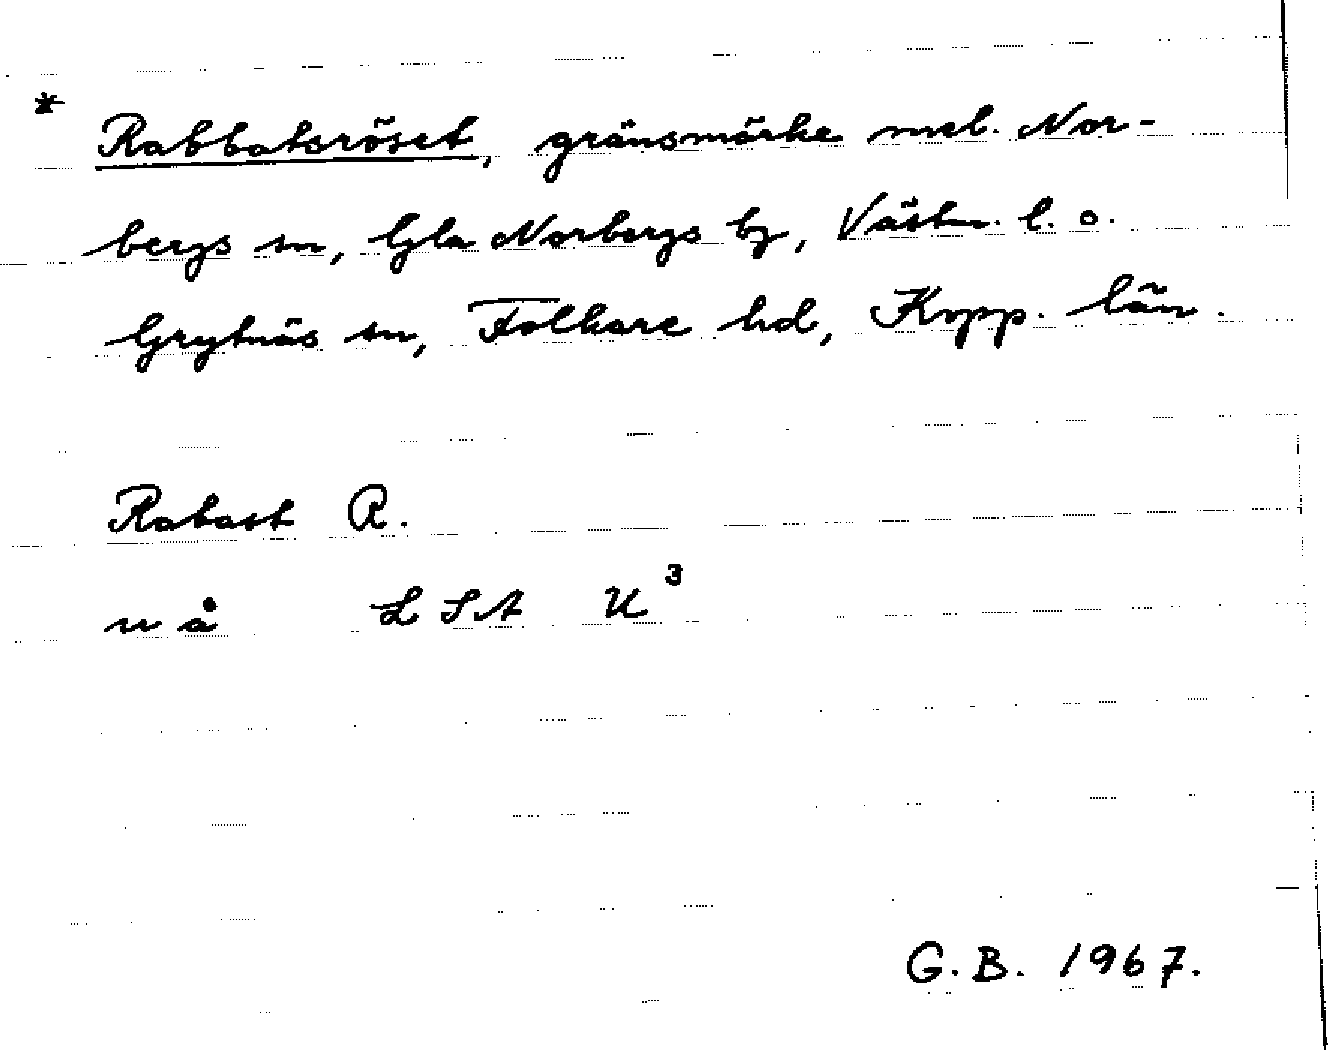 * Rabbatsröset, gränsmärke mel. Nor-
bergs sn, Gla Norbergs bg, Västm. l. o.
Grytnäs sn, Folkare hd, Kopp. län.
Rabast R.
n å LSA U³
G.B. 1967.